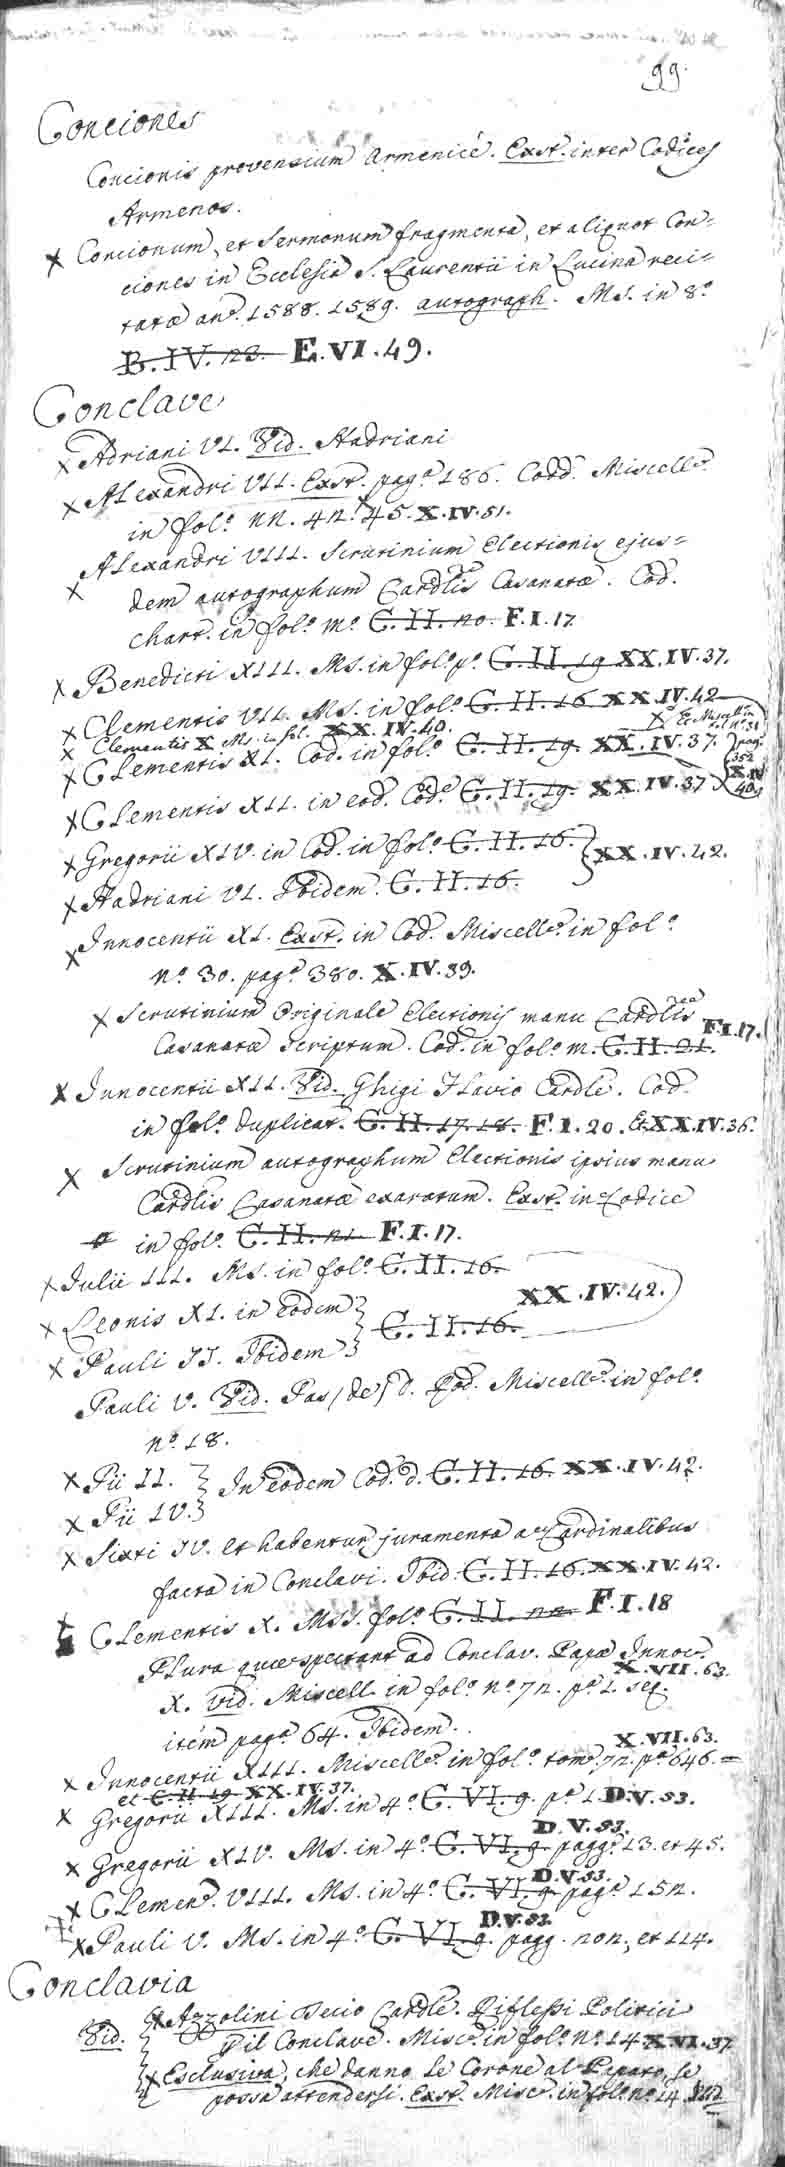 99.
Conciones
Concionis provensium Armenicé. Exst. inter Codices
Armenos.
x Concionum, et Sermonum fragmenta, et aliquot Con=
ciones in Ecclesia S. Laurentii in Lucina reci=
tatæ anº. 1588. 1589. autograph. MS. in 8º
B. IV. 23. E. VI. 49.
Conclave
x Adriani VI. Vid. Hadriani
x Alexandri VII. Exst. pagª 186. Codd. Miscellº
in folº nn. 42. 45. X. IV. 51.
x Alexandri VIII. Scrutinium Electionis ejus=
dem autographum Cardlis Casanatæ. Cod.
chart. in folº mº C. II. 20. F. I. 17
x Benedicti XIII. MS. in folº pº C. II. 19 XX. IV. 37.
x Clementis VII. MS. in folº C. II. 16 XX. IV. 42
x Clementis X Ms. in fol. XX. IV. 40.
x Et Miscell. in fol. nº 31 pag. 352 X. IV 40.
x Clementis XI. Cod. in folº C. II. 19. XX. IV. 37.
x Clementis XII. in eod. Codº C. II. 19. XX. IV. 37
x Gregorii XIV. in Cod. in folº C. II. 16. } XX. IV. 42.
x Hadriani VI. Ibidem. C. II. 16.
x Innocentii XI. Exst. in Cod. Miscellº in folº
nº 30. pagª 380. X. IV. 39.
x Scrutinium Originale Electionis manu Cardlis
Casanatæ Scriptum. Cod. in folº m. C. II. 21. F. I. 17.
x Innocentii XII. Vid. Ghigi Flavio Cardle. Cod.
in folº duplicat. C. II. 17. 18. F. I. 20. Et XX. IV. 36.
x Scrutinium autographum Electionis ipsius manu
Cardlis Casanatæ exaratum. Exst. in Codice
in folº C. II. 21 F. I. 17.
x Julii III. MS. in folº C. II. 16.
x Leonis XI. in eodem } C. II. 16. XX. IV. 42.
x Pauli II. Ibidem }
Pauli V. Vid. Cod. Miscellº in folº
nº 18.
x Pii II. } In eodem Cod. C. II. 16. XX. IV. 42.
x Pii IV. }
x Sixti IV. et habentur juramenta a Cardinalibus
facta in Conclavi. Ibid. C. II. 16. XX. IV. 42.
Clementis X. MSS. folº C. II. 22 F. I. 18
Plura quæ spectant ad Conclav. Papæ Innoc.
X. Vid. Miscell. in folº nº 72. pª 1. seq. X. VII. 63.
item pagª 64. Ibidem.
x Innocentii XIII. Miscellº in folº tomº 72. pª 646. = X. VII. 63.
et C. II. 19 XX. IV. 37.
x Gregorii XIII. MS. in 4º C. VI. 9. pª 1. D. V. 53.
x Gregorii XIV. MS. in 4º C. VI. 9. pagg. 13. et 45. D. V. 53.
x Clemenº VIII. MS. in 4º C. VI. 9. pagª 152. D. V. 53.
x Pauli V. MS. in 4º C. VI. 9. pagg. 202, et 114. D. V. 53.
Conclavia
Vid. x Azzolini Decio Cardle. Riflessi Politici
p il Conclave. Misc. in folº nº 14 X. VI. 37.
x Esclusiva, che danno le Corone al Papato, se
possa attendersi. Exst. Misc. in folº nº 14